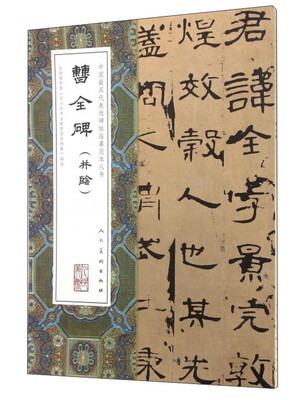 君諱全字景完敦
煌效穀人也其先
蓋周之胄武王秉
中国最具代表性碑帖临摹范本丛书
曹全碑（并陰）
人民美术出版社